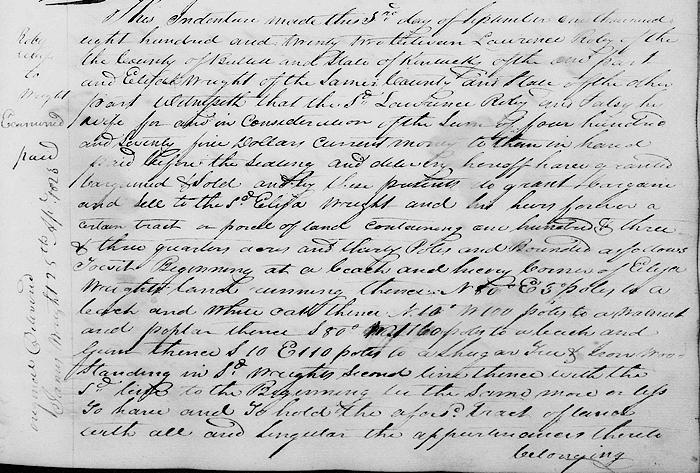 This Indenture made this 3rd day of September one thousand
eight hundred and Twenty two Between Lawrence Reby of the
the County of and State of Kentucky of the one part
and Elijah Wright of the Same County and State of the other
part Witnesseth that the Sd Lawrence Reby and Patsy his
wife for and in Consideration of the Sum of four hundred
and Seventy five Dollars Current money to them in hand
paid before the Sealing and delivery hereoff have granted
bargained & Sold and by these presents do grant Bargain
and sell to the Sd Elija Wright and his heirs forever a
certain tract or parcel of land containing one hundred & three
& three quarters acres and thirty Poles and Bounded as follows
Towit Beginning at a beach and hicory corner of Elija
Wrights land running thence N 80° E 3 poles to a
beach and White oak thence N 10° W 100 poles to a Walnut
and poplar thence S 80° W 160 poles to a beach and
Gum thence S 10 E 110 poles to a Shugar Tree & Iron Wood
Standing in Sd Wrights Second line thence with the
Sd line to the Beginning be the Same more or less
To have and To hold the aforesd tract of land
with all and Singular the appurtinances thereto
belonging
Reby
to
Wright
Examined
paid
Wright 25th Apl 1828